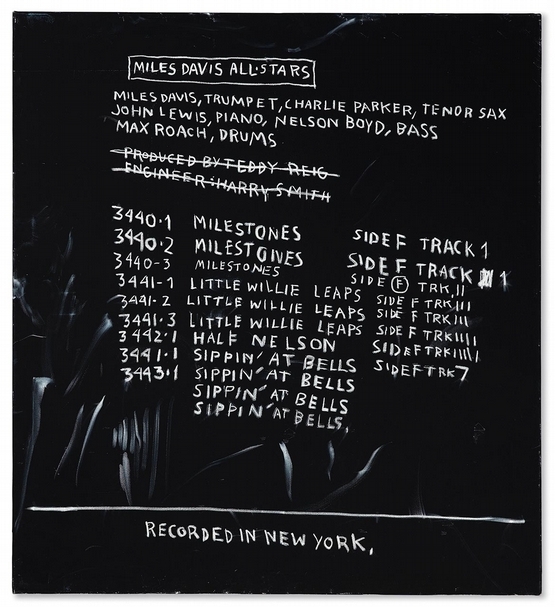 MILES DAVIS ALL·STARS
MILES DAVIS, TRUMPET, CHARLIE PARKER, TENOR SAX
JOHN LEWIS, PIANO, NELSON BOYD, BASS
MAX ROACH, DRUMS
PRODUCED BY TEDDY REIG
ENGINEER: HARRY SMITH
3440·1 MILESTONES SIDE F TRACK 1
3440·2 MILESTONES SIDE F TRACK 1
3440-3 MILESTONES SIDE F TRK, II
3441-1 LITTLE WILLIE LEAPS SIDE F TRK III
3441·2 LITTLE WILLIE LEAPS SIDE F TRK III
3441·3 LITTLE WILLIE LEAPS SIDE F TRK IIII
3442·1 HALF NELSON SIDE F TRK IIIII
3441·1 SIPPIN' AT BELLS SIDE F TRK 7
3443·1 SIPPIN' AT BELLS
SIPPIN' AT BELLS
SIPPIN' AT BELLS.
RECORDED IN NEW YORK.